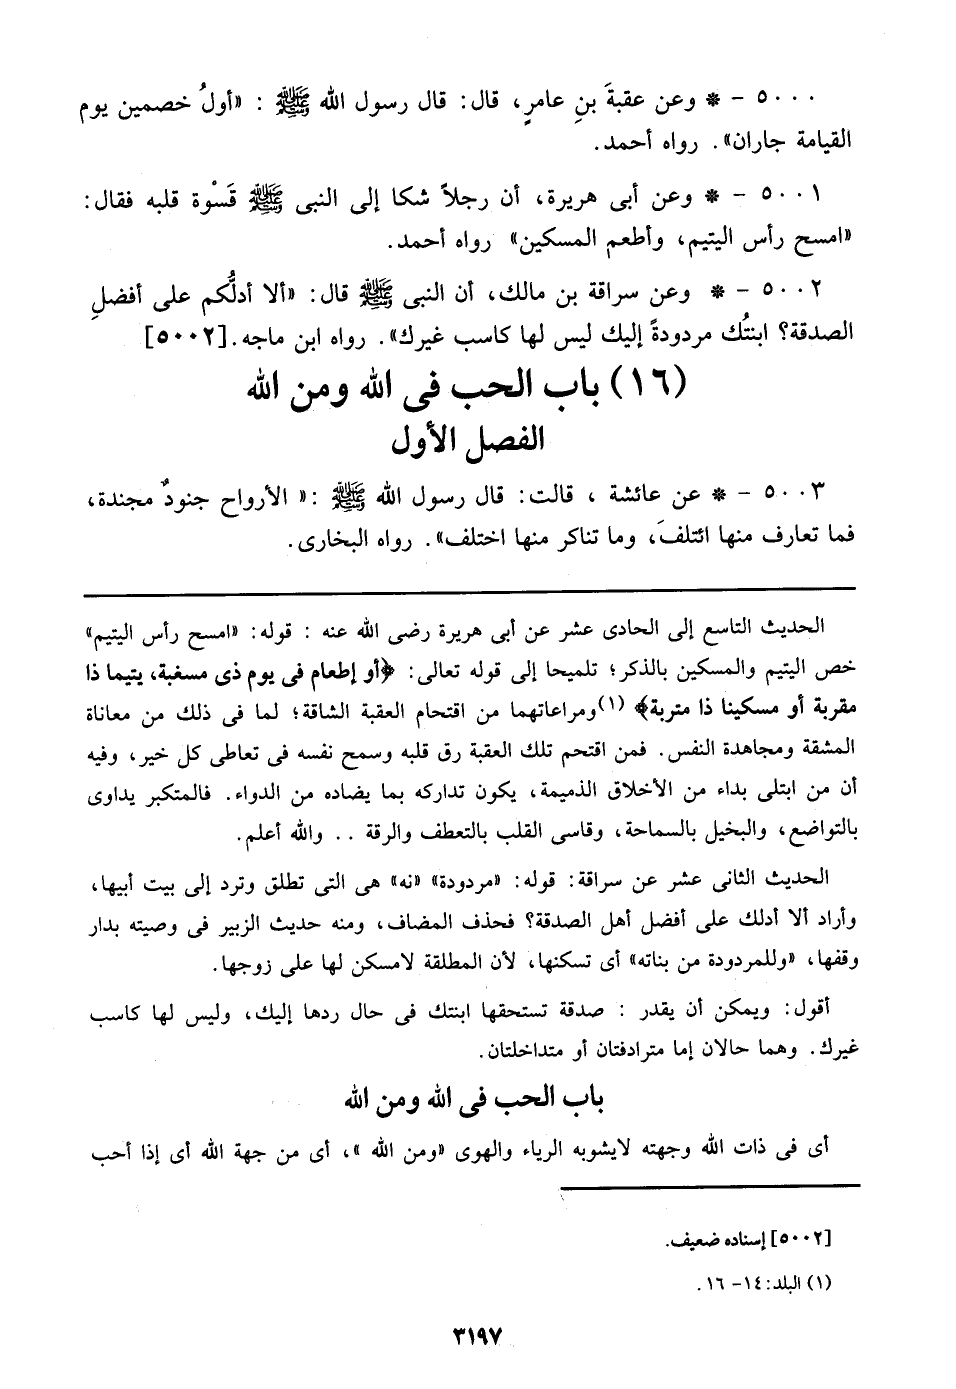 ٥٠٠٠ – * وعن عقبةَ بنِ عامرٍ، قال: قال رسول الله ﷺ : «أولُ خصمين يوم
القيامة جاران». رواه أحمد.
٥٠٠١ – * وعن أبى هريرة، أن رجلاً شكا إلى النبى ﷺ قَسْوة قلبه فقال:
«امسح رأس اليتيم، وأطعم المسكين» رواه أحمد.
٥٠٠٢ – * وعن سراقة بن مالك، أن النبى ﷺ قال: «ألا أدلُّكم على أفضلِ
الصدقة؟ ابنتُك مردودةً إليك ليس لها كاسب غيرك». رواه ابن ماجه.[٥٠٠٢]
(١٦) باب الحب فى الله ومن الله
الفصل الأول
٥٠٠٣ – * عن عائشة ، قالت: قال رسول الله ﷺ :« الأرواح جنودٌ مجندة،
فما تعارف منها ائتلفَ، وما تناكر منها اختلف». رواه البخارى.
الحديث التاسع إلى الحادى عشر عن أبى هريرة رضى الله عنه : قوله: «امسح رأس اليتيم»
خص اليتيم والمسكين بالذكر؛ تلميحا إلى قوله تعالى: ﴿أو إطعام فى يوم ذى مسغبة، يتيما ذا
مقربة أو مسكينا ذا متربة﴾ (١)ومراعاتهما من اقتحام العقبة الشاقة؛ لما فى ذلك من معاناة
المشقة ومجاهدة النفس. فمن اقتحم تلك العقبة رق قلبه وسمح نفسه فى تعاطى كل خير، وفيه
أن من ابتلى بداء من الأخلاق الذميمة، يكون تداركه بما يضاده من الدواء. فالمتكبر يداوى
بالتواضع، والبخيل بالسماحة، وقاسى القلب بالتعطف والرقة .. والله أعلم.
الحديث الثانى عشر عن سراقة: قوله: «مردودة» «نه» هى التى تطلق وترد إلى بيت أبيها،
وأراد ألا أدلك على أفضل أهل الصدقة؟ فحذف المضاف، ومنه حديث الزبير فى وصيته بدار
وقفها، «وللمردودة من بناته» أى تسكنها، لأن المطلقة لامسكن لها على زوجها.
أقول: ويمكن أن يقدر : صدقة تستحقها ابنتك فى حال ردها إليك، وليس لها كاسب
غيرك. وهما حالان إما مترادفتان أو متداخلتان.
باب الحب فى الله ومن الله
أى فى ذات الله وجهته لايشوبه الرياء والهوى «ومن الله »، أى من جهة الله أى إذا أحب
[٥٠٠٢] إسناده ضعيف.
(١) البلد: ١٤– ١٦ .
٣١٩٧